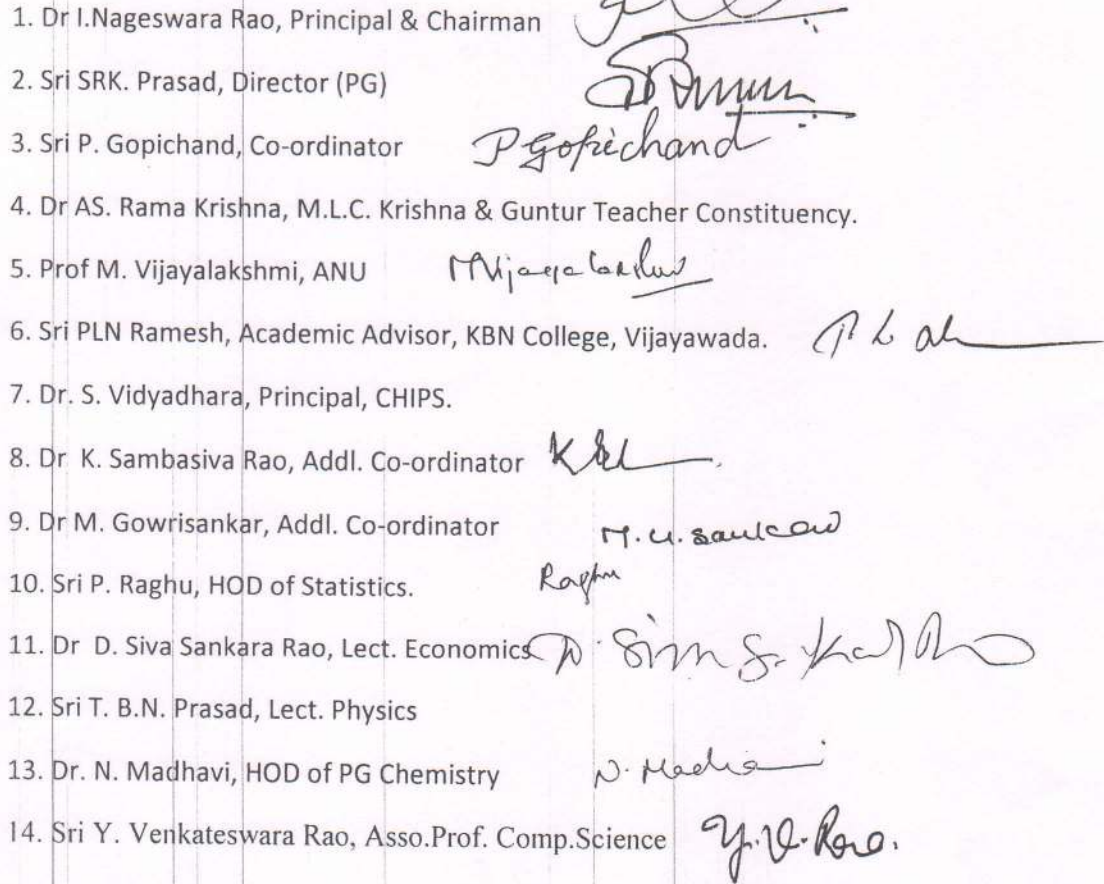 1. Dr I.Nageswara Rao, Principal & Chairman
2. Sri SRK. Prasad, Director (PG)
3. Sri P. Gopichand, Co-ordinator P Gopichand
4. Dr AS. Rama Krishna, M.L.C. Krishna & Guntur Teacher Constituency.
5. Prof M. Vijayalakshmi, ANU MVijayalakshmi
6. Sri PLN Ramesh, Academic Advisor, KBN College, Vijayawada.
7. Dr. S. Vidyadhara, Principal, CHIPS.
8. Dr K. Sambasiva Rao, Addl. Co-ordinator
9. Dr M. Gowrisankar, Addl. Co-ordinator
10. Sri P. Raghu, HOD of Statistics. Raghu
11. Dr D. Siva Sankara Rao, Lect. Economics
12. Sri T. B.N. Prasad, Lect. Physics
13. Dr. N. Madhavi, HOD of PG Chemistry N. Madhavi
14. Sri Y. Venkateswara Rao, Asso.Prof. Comp.Science Y.V.Rao.